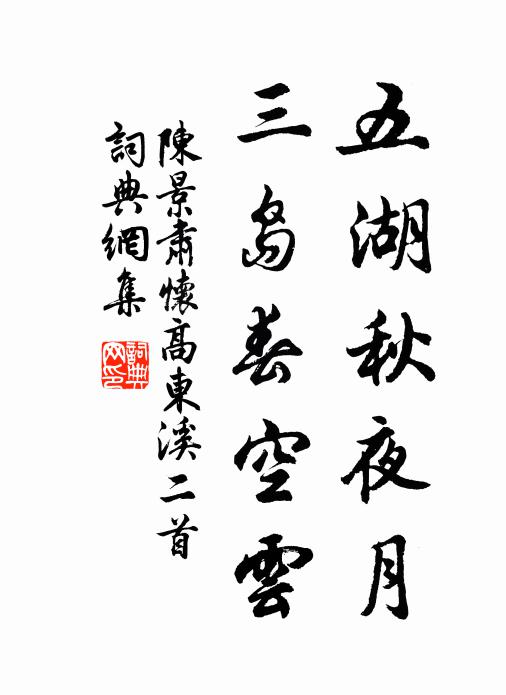 五湖秋夜月
三岛春空雲
陳景肅懷高東溪二首
詞典網集
詞典
网印